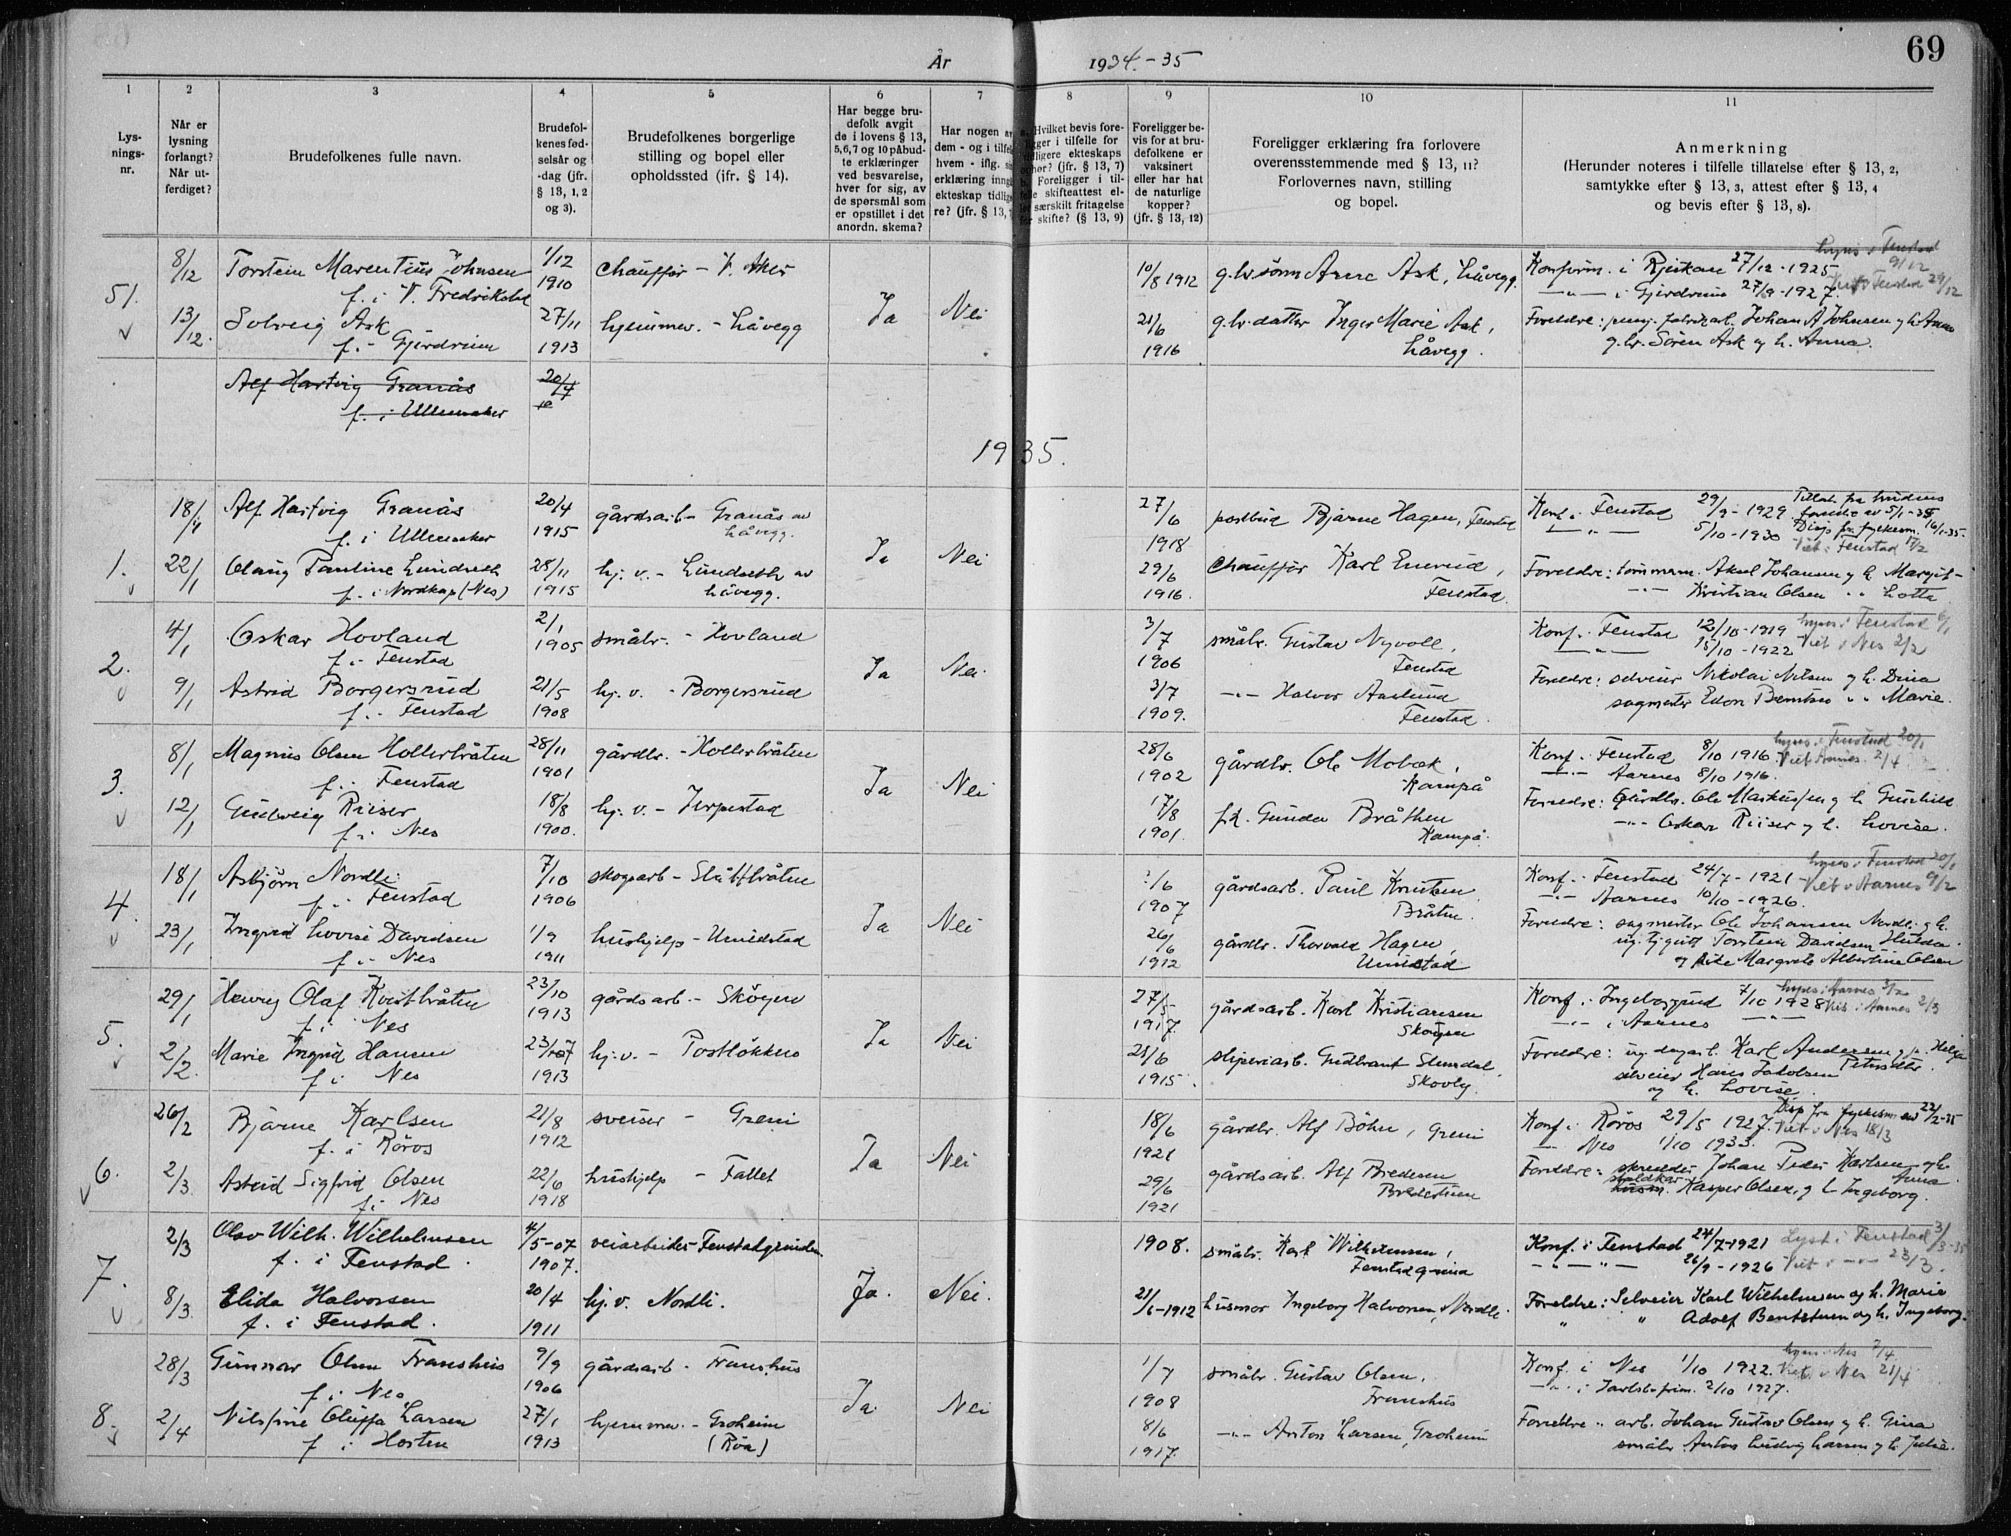 69
År 1934.-35
1 2 3 4 5 6 7 8 9 10 11
Lys-
nings-
nr.
Når er
lysning
forlangt?
Når ut-
ferdiget?
Brudefolkenes fulle navn.
Brudefol-
kenes fød-
selsår og
-dag (jfr.
§ 13, 1, 2
og 3).
Brudefolkenes borgerlige
stilling og bopel eller
opholdssted (ifr. § 14).
Har begge bru-
defolk avgit
de i lovens § 13,
5,6,7 og 10 påbud-
te erklæringer
ved besvarelse,
hver for sig, av
de spørsmål som
er opstillet i det
anordn. skema?
Har nogen av
dem - og i tilfelle
hvem - iflg.
erklæring inngå
ekteskap tidlige-
re? (jfr. § 13,
Hvilket bevis fore-
ligger i tilfelle for
tidligere ekteskaps
ophør? (jfr. § 13, 7)
Foreligger i til-
felle skifteattest el-
ler særskilt fritagelse
for skifte? (§ 13, 9)
Foreligger be-
vis for at bru-
defolkene er
vaksinert
eller har hat
de naturlige
kopper?
(jfr. § 13, 12)
Foreligger erklæring fra forlovere
overensstemmende med § 13, 11?
Forlovernes navn, stilling
og bopel.
Anmerkning
(Herunder noteres i tilfelle tillatelse efter § 13, 2,
samtykke efter § 13, 3, attest efter § 13, 4
og bevis efter § 13, 8).
51. 8/12 Torstein Marentius Johnsen 1/12 1910 chauffør - V. Aker 10/8 1912 g.br.sønn Arne Ask, Låvegg. Konfirm. i Rjukan 27/12-1925 Lyses i Fenstad 9/12
f. i V. Fredrikstad Ja Nei —"— i Gjerdrum 27/9-1927. Fenstad 29/12
13/12. Solveig Ask 27/11 1913 hjemmev. - Låvegg 21/6 1916 g.br.datter Inger Marie Ask, Låvegg. Foreldre: pensj. fabrikarb. Johan A Johnsen og h. Anna
f. - Gjerdrum g.br. Søren Ask og h. Anna.
Alf Hartvig Granås 20/4
f. i Ullensaker
1935.
1. 18/1 Alf Hartvig Granås 20/4 1915 gårdsarb - Granås av Låvegg. 27/6 1918 postbud Bjarne Hagen, Fenstad Konf. i Fenstad 29/9-1929 Tillat. fra brudens foreldre av 5/1-35
f. i Ullensaker Ja Nei —"— 5/10-1930 Disp. fra fylkesm. 16/1-35.
Viet i Fenstad
22/1 Olaug Tantine Lundseth 28/11 1915 hj. v. - Lundseth av Låvegg. 29/6 1916. chauffør Karl Enerud, Fenstad. Foreldre: tømmerm. Aksel Johansen og h. Margit
f. i Nordkap (Nes) —"— Kristian Olsen " " Lotta
2. 4/1 Oskar Hovland 2/1 1905 småbr. - Hovland 3/7 1906 småbr. Gustav Nyvoll, Fenstad Konf. i Fenstad 12/10-1919 Lyses i Fenstad 6/1
f. i Fenstad Ja Nei —"— 15/10-1922 Viet i Nes 2/2
9/1 Astrid Borgersrud 21/5 1908 hj. v. - Borgersrud 3/7 1909. —"— Halvor Aaslund Fenstad. Foreldre: selveier Nikolai Nilsen og h. Dina
f. i Fenstad sagmester Edon Berntsen " " Marie.
3. 8/1 Magnus Olsen Hollerbråten 28/11 1901 gårdbr. - Hollerbråten 28/6 1902 gårdbr. Ole Mobæk, Kampå Konf. i Fenstad 8/10 1916. Lyses i Fenstad 20/1
f. i Fenstad Ja Nei —"— Aarnes 8/10 1916. Viet Aarnes 2/4
12/1 Gudveig Riiser 18/8 1900. hj. v. - Jerpestad 17/8 1901. frk. Gunda Bråthen Kampå. Foreldre: Gårdbr. Ole Markussen og h. Gunhild
f. i Nes —"— Oskar Riiser og h. Lovise.
4. 18/1 Asbjørn Nordli 7/10 1906 skogsarb - Slåttbråten /6 1907 gårdsarb. Paul Knutsen Bråten. Konf. i Fenstad 24/7-1921 Lyses i Fenstad 20/1
f. i Fenstad Ja Nei —"— Aarnes 10/10-1926. Viet i Aarnes 9/2
23/1 Ingrid Lovise Davidsen 1/9 1911 hushjelp - Urnidstad 26/6 1912 gårdbr. Thorvald Hagen, Foreldre: sagmester Ole Johansen Nordli og h.
f. i Nes Torstein Davidsen Hulda og pike Margrete Albertine Olsen
5. 29/1 Henry Olaf Kvistbråten 23/10 1913 gårdsarb - Skogen 27/5 1917. gårdsarb. Karl Kristiansen Skogen Konf. i Ingeborgrud 7/10 1928 Lyses i Aarnes
f. i Nes Ja Nei —"— i Aarnes —"— Viet i Aarnes 2/3
2/2. Marie Ingrid Hansen 23/7 1913 hj.v. - Postløkken 21/6 1915. sliperiarb. Gudbrand Skovly. Foreldre: Karl Andersen og h. Helga Petersdtr.
f. i Nes selveier Hans Jakobsen
og h. Lovise.
6. 26/2 Bjarne Karlsen 21/8 1912 sveiser - Greni 18/6 1921 gårdbr. Alf Bøhn, Greni Konf. i Røros 29/5 1927. Disp. fra fylkesm. av 22/2-35
f. i Røros Ja Nei — Nes 1/10 1933. Viet i Nes 18/3
2/3. Astrid Sigfrid Olsen 22/6 1918 hushjelp - Fallet 29/6 1921 gårdsarb. Alf Bredesen Foreldre: Johan Peder Karlsen og h.
f. i Nes Kasper Olsen, og h. Ingeborg.
7. 2/3 Olav Wilh. Wilhelmsen 4/5-07 1907. veiarbeider - Fenstadgrinden 1908. småbr. Karl Wilhelmsen, Fenstadgrina Konf. i Fenstad 24/7-1921 Lyst i Fenstad 3/3-35
f. i Fenstad. Ja. Nei. —"—"— 26/9-1926 Viet i —"— 23/3.
8/3. Elida Halvorsen 20/4 1911 hj. v. Nordli. 21/6-1912 husmor Ingeborg Halvorsen, Nordli Foreldre: Selveier Karl Wilhelmsen og h. Marie
f. i Fenstad. " " Adolf Berntsen og h. Ingeborg.
8. 28/3 Gunnar Olsen Franshus 9/9 1906 gårdsarb - Franshus 1/7 1908 småbr. Gustav Olsen, Franshus Konf. i Nes 1/10 1922. Lyses i Nes 7/4
f. i Nes Ja Nei —"— i Jarlsberg 2/10 1927. Viet i Nes 21/4
2/4 Nilsfine Oluffa Larsen 27/1 1913 hjemmev. - Groheim (Røa) 8/6 1917. —"— Anton Larsen, Groheim Foreldre " arb. Johan Gustav Olsen og h. Gina
f. i Horten småbr. Anton Ludvig Larsen og h. Julie.